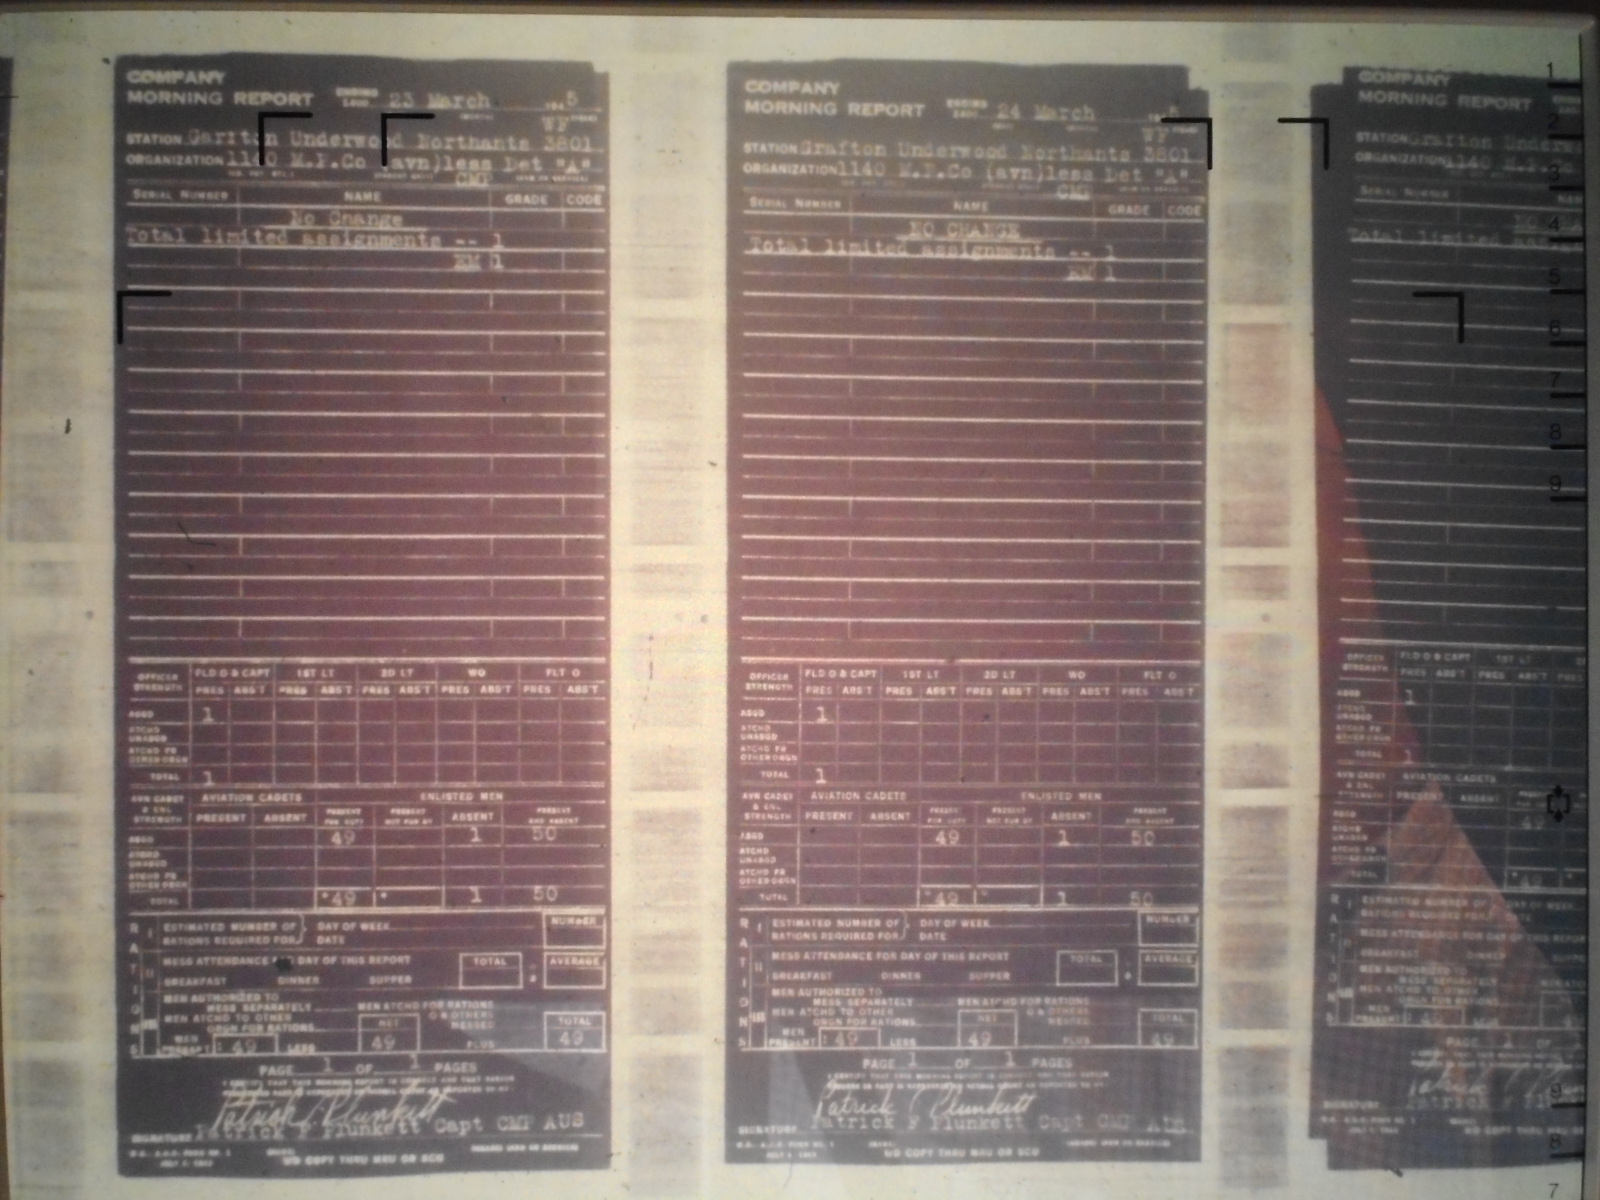 COMPANY
MORNING REPORT ENDING 23 March 5
WP
STATION Gariton Underwood Northants 3801
ORGANIZATION 1140 M.P.Co (avn)less Det "A"
CMP
SERIAL NUMBER NAME GRADE CODE
No Change
Total limited assignments -- 1
EM 1
OFFICER STRENGTH FLD O & CAPT 1ST LT 2D LT WO FLT O
PRES ABS'T PRES ABS'T PRES ABS'T PRES ABS'T PRES ABS'T
ASGD 1
ATCHD UNASGD
ATCHD FR OTHER ORGN
TOTAL 1
AVN CADET & ENL STRENGTH AVIATION CADETS ENLISTED MEN
PRESENT ABSENT PRESENT FOR DUTY PRESENT NOT FOR DY ABSENT PRESENT AND ABSENT
ASGD 49 1 50
ATCHD UNASGD
ATCHD FR OTHER ORGN
TOTAL 49 1 50
RATIONS
I ESTIMATED NUMBER OF RATIONS REQUIRED FOR DAY OF WEEK DATE NUMBER
II MESS ATTENDANCE FOR DAY OF THIS REPORT TOTAL AVERAGE
BREAKFAST DINNER SUPPER
III MEN AUTHORIZED TO MESS SEPARATELY MEN ATCHD FOR RATIONS
MEN ATCHD TO OTHER ORGN FOR RATIONS NET & OTHERS MESSED TOTAL
MEN PRESENT 49 LESS 49 PLUS 49
PAGE 1 OF 1 PAGES
Patrick F. Plunkett
SIGNATURE Patrick F Plunkett Capt CMP AUS
NO COPY THRU MRU OR SCU
COMPANY
MORNING REPORT ENDING 24 March
WP
STATION Grafton Underwood Northants 3801
ORGANIZATION 1140 M.P.Co (avn)less Det "A"
CMP
SERIAL NUMBER NAME GRADE CODE
NO CHANGE
Total limited assignments -- 1
EM 1
OFFICER STRENGTH FLD O & CAPT 1ST LT 2D LT WO FLT O
PRES ABS'T PRES ABS'T PRES ABS'T PRES ABS'T PRES ABS'T
ASGD 1
ATCHD UNASGD
ATCHD FR OTHER ORGN
TOTAL 1
AVN CADET & ENL STRENGTH AVIATION CADETS ENLISTED MEN
PRESENT ABSENT PRESENT FOR DUTY PRESENT NOT FOR DY ABSENT PRESENT AND ABSENT
ASGD 49 1 50
ATCHD UNASGD
ATCHD FR OTHER ORGN
TOTAL 49 1 50
RATIONS
I ESTIMATED NUMBER OF RATIONS REQUIRED FOR DAY OF WEEK DATE NUMBER
II MESS ATTENDANCE FOR DAY OF THIS REPORT TOTAL AVERAGE
BREAKFAST DINNER SUPPER
III MEN AUTHORIZED TO MESS SEPARATELY MEN ATCHD FOR RATIONS
MEN ATCHD TO OTHER ORGN FOR RATIONS NET & OTHERS MESSED TOTAL
MEN PRESENT 49 LESS 49 PLUS 49
PAGE 1 OF 1 PAGES
Patrick F Plunkett
SIGNATURE Patrick F Plunkett Capt CMP AUS
NO COPY THRU MRU OR SCU
COMPANY
MORNING REPORT
STATION Grafton
ORGANIZATION 1140 M.P.
SERIAL NUMBER
Total limited
OFFICER STRENGTH FLD O & CAPT 1ST LT
PRES ABS'T PRES ABS'T PRES
ASGD 1
TOTAL 1
AVIATION CADETS
PRESENT ABSENT
ESTIMATED NUMBER OF DAY OF WEEK
RATIONS REQUIRED FOR DATE
MESS ATTENDANCE FOR DAY OF THIS
BREAKFAST DINNER
PAGE 1 OF
1
2
3
4
5
6
7
8
9
9
8
7